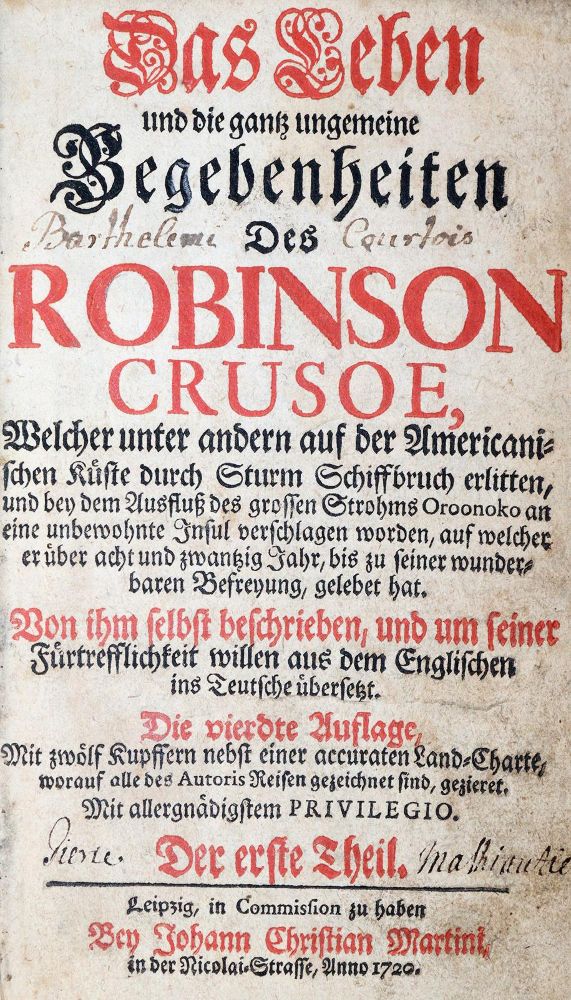 Das Leben
und die gantz ungemeine
Begebenheiten
Barthelemi Des Courtois
ROBINSON
CRUSOE,
Welcher unter andern auf der Americani-
schen Küste durch Sturm Schiffbruch erlitten,
und bey dem Ausfluß des grossen Strohms Oroonoko an
eine unbewohnte Insul verschlagen worden, auf welcher
er über acht und zwantzig Jahr, bis zu seiner wunder-
baren Befreyung, gelebet hat.
Von ihm selbst beschrieben, und um seiner
Fürtrefflichkeit willen aus dem Englischen
ins Teutsche übersetzt.
Die vierdte Auflage,
Mit zwölf Kupffern nebst einer accuraten Land-Charte,
worauf alle des Autoris Reisen gezeichnet sind, gezieret.
Mit allergnädigstem PRIVILEGIO.
Der erste Theil.
Leipzig, in Commission zu haben
Bey Johann Christian Martini,
in der Nicolai-Strasse, Anno 1720.